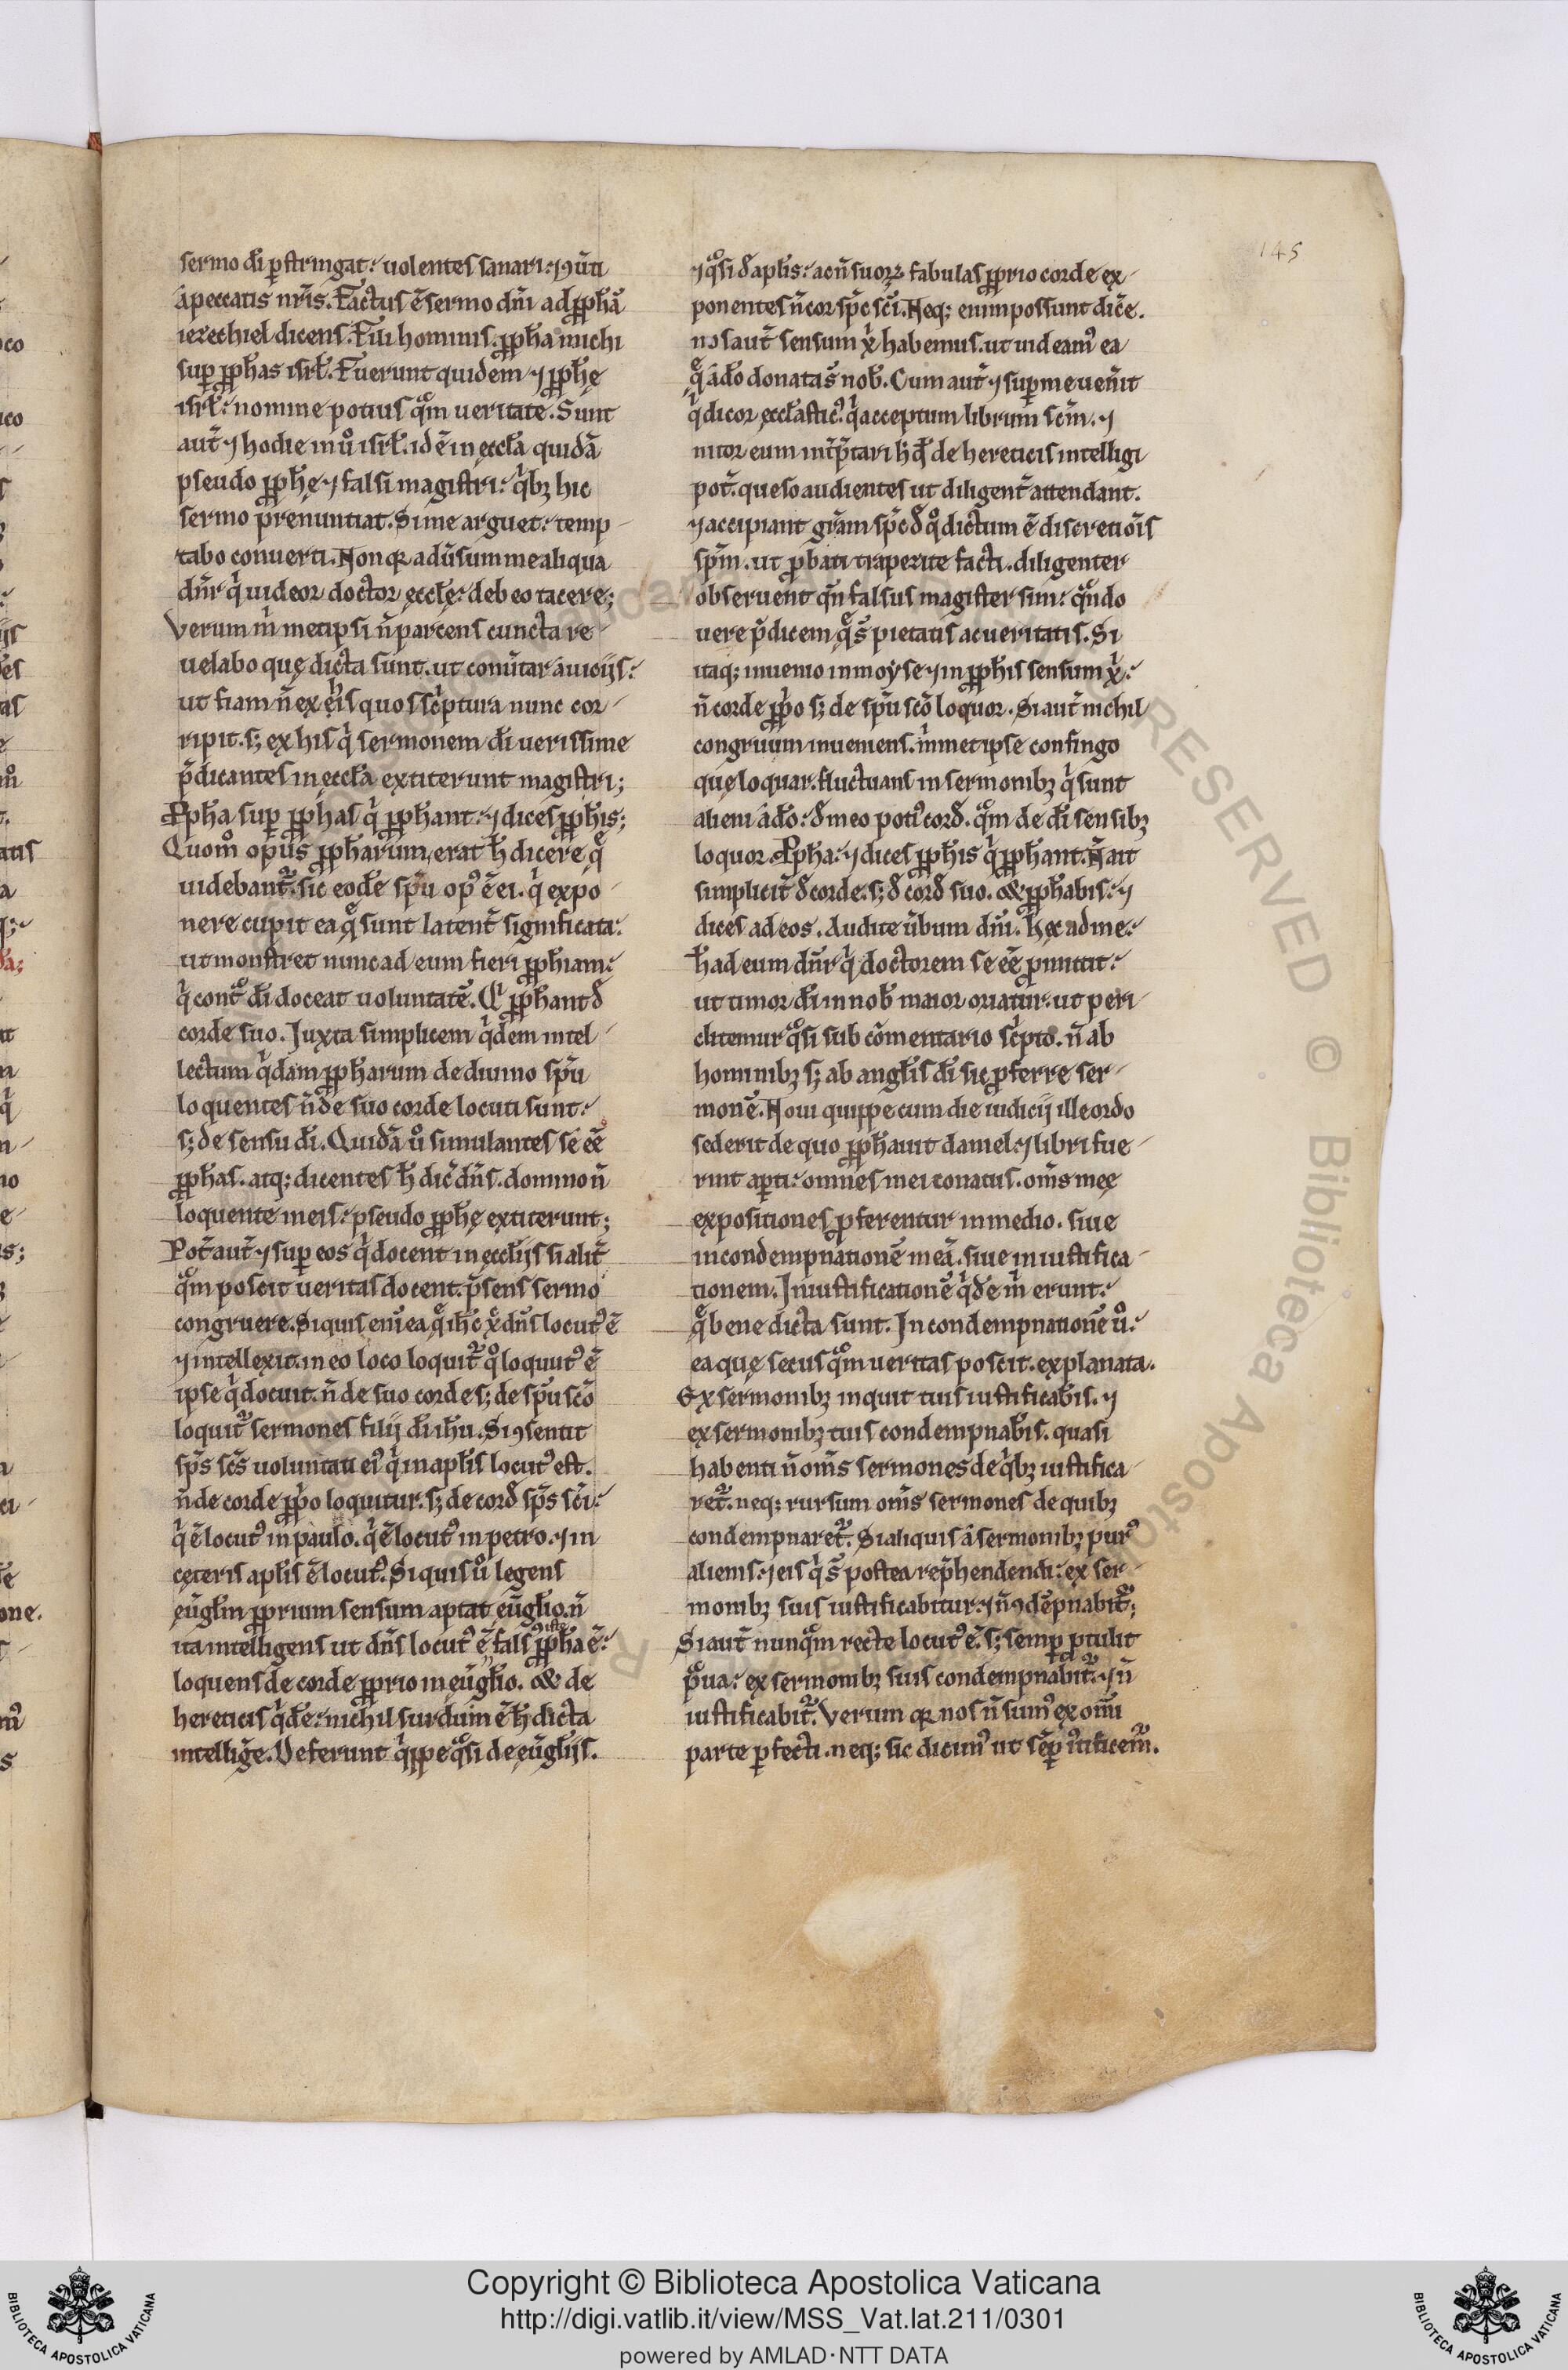 145
sermo dī ꝑstringat: uolentes sanari: ⁊ ꝯūti
a peccatis nr̄is. Factus ē sermo dn̄i ad ꝓph̄ā
iezechiel dicens. Fili hominis. ꝓph̄a michi
suꝑ ꝓph̄as isrł. Fuerunt quidem ⁊ ꝓph̄ę
isrł: nomine potius qͣm ueritate. Sunt
aut̄ ⁊ hodie in uͦ isrł. id ē in eccła quidā
pseudo ꝓph̄ę ⁊ falsi magistri: qͥbꝫ hic
sermo prenuntiat. Si me arguet: temp-
tabo conuerti. Non qꝛ adūsum me aliqua
dn̄r qͥ uideor doctor ęccłę: debeo tacere;
Verum m̄ metipsi n̄ parcens cuncta re-
uelabo quę dicta sunt. ut conūtar a uicijs:
ut fiam n̄ ex eis quos scͥptura nunc cor-
ripit. sꝫ ex his qͥ sermonem dī uerissime
p̄dicantes in eccła extiterunt magistri;
Ꝓph̄a suꝑ ꝓph̄as qͥ ꝓph̄ant: ⁊ dices ꝓph̄is;
Quom̊ opus ꝓph̄arum erat h̄ dicere qͤ
uidebant᷑. sic eodē sp̄u opꝰ ē ei. qͥ expo-
nere cupit ea qͤ sunt latent̄ significata:
ut monstret nunc ad eum fieri ꝓph̄iam:
qͥ contͣ dī doceat uoluntatē. Qͥ ꝓph̄ant đ
corde suo. Juxta simplicem qͥdem intel-
lectum qͥdam ꝓph̄arum de diuino sp̄u
loquentes n̄ de suo corde locuti sunt:
sꝫ de sensu dī. Quidā uͦ simulantes se eē
ꝓph̄as. atqꝫ dicentes h̄ dic̄ dn̄s. domino n̄
loquente in eis: pseudo ꝓph̄ę extiterunt;
Pot̄ aut̄ ⁊ suꝑ eos qͥ docent in ęccłijs si alit̄
qͣm poscit ueritas docent. p̄sens sermo
congruere. Si quis enī ea qͤ ih̄c xͤ dn̄s locutꝰ ē
⁊ intellexit. in eo loco loquit᷑ qͦ loquutꝰ ē
ipse qͥ docuit. n̄ de suo corde sꝫ de sp̄u scō
loquit᷑ sermones filij dī ih̄u. Si ꝯsentit
sp̄s scs̄ uoluntati eiꝰ qͥ in apłis locutꝰ est.
n̄ de corde ꝓpͥo loquitur. sꝫ de cord̄ sp̄s sc̄i:
qͥ ē locutꝰ in paulo. qͥ ē locutꝰ in petro. ⁊ in
cęteris apłis ē locutꝰ. Si quis uͦ legens
eūgłm ꝓprium sensum aptat eūgłio. n̄
ita intelligens ut dn̄s locutꝰ ē falsꝰ iste ꝓph̄a ē:
loquens de corde ꝓprio in eūgłio. & de
hereticis qͥdē: nichil surdum ē h̄ dicta
intelligē. Deferunt qͥppe qͣsi de eūgłijs.
⁊ qͣsi đ apłis: ac n̄ suorꝝ fabulas ꝓprio corde ex-
ponentes n̄ cor sp̄c sc̄i. Neqꝫ enim possunt dicē.
nos aut̄ sensum xͥ habemus. ut uideamꝰ ea
qͤ a dō donatas̄ nob̄. Cum aut̄ ⁊ suꝑ me uen̄it
qͥ dicor ęccłasticꝰ. qͥ acceptum librum sc̄m. ⁊
nitor eum int̄p̄tari h̄ qđ de hereticis intelligi
pot̄. queso audientes ut diligent̄ attendant.
⁊ accipiant gr̄am sp̄c đ qͦ dictum ē discretiōis
sp̄m. ut ꝓbati trapezite facti. diligenter
obseruent qn̄ falsus magister sim: qͣndo
uere p̄dicem qͤ s̄ pietatis ac ueritatis. Si
itaqꝫ inuenio in moẏse ⁊ in ꝓph̄is sensum xͥ:
n̄ corde ꝓpͥo sꝫ de sp̄u scō loquor. Si aut̄ nichil
congruum inueniens. m̄ metipse confingo
quę loquar. fluctuans in sermonibꝫ qͥ sunt
alieni a dō: đ meo potiꝰ cord̄. qͣm de dī sensibꝫ
loquor. Ꝓph̄a: ⁊ dices ꝓph̄is qͥ ꝓph̄ant. N̄ ait
simplicit̄ đ corde. sꝫ đ cord̄ suo. & ꝓph̄abis: ⁊
dices ad eos. Audite ūbum dn̄i. hęc ad me:
h̄ ad eum dn̄r qͥ doctorem se eē ꝓnuntiat:
ut timor dī in nob̄ maior oriatur: ut peri-
clitemur qͣsi sub cōmentario scͥpto. n̄ ab
hominibꝫ sꝫ ab angłis dī sic ꝓferre ser-
monē. Noui quippe cum die iudicij ille ordo
sederit de quo ꝓph̄auit daniel. ⁊ libri fue-
rint aꝑti: omnes mei conatus. om̄s męę
expositiones ꝓferentur in medio. siue
in condempnationē meā. siue in iustifica-
tionem. In iustificationē qͥdē m̄ erunt:
qͤ bene dicta sunt. In condempnationē uͦ:
ea quę secus qͣm ueritas poscit. explanata.
Ex sermonibꝫ inquit tuis iustificab̄is. ⁊
ex sermonibꝫ tuis condempnab̄is. quasi
habenti n̄ om̄s sermones de qͥbꝫ iustifica-
ret᷑. neqꝫ rursum om̄s sermones de quibꝫ
condempnaret᷑. Si aliquis a sermonibꝫ purꝰ
alienis: ⁊ eis qͥ s̄ postea rep̄hendendi: ex ser-
monibꝫ suis iustificabitur: ⁊ n̄ ꝯdēpnabit᷑;
Si aut̄ nunqͣm recte locutꝰ ē. sꝫ semꝑ ꝓtulit
pͣua: ex sermonibꝫ suis condempnabit᷑: ⁊ n̄
iustificabit᷑. Verum qꝛ nos n̄ sumꝰ ex om̄i
parte ꝑfecti. neqꝫ sic dicimꝰ ut sēꝑ iustificem᷑.
Copyright © Biblioteca Apostolica Vaticana
http://digi.vatlib.it/view/MSS_Vat.lat.211/0301
powered by AMLAD·NTT DATA